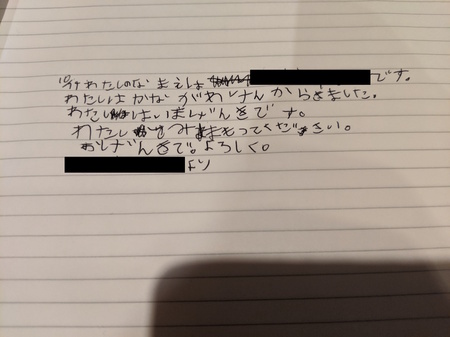 わたしのなまえは です。
わたしはかながわけんからきました。
わたしはいまげんきです。
わたし まもってください。
おげんきで。よろしく。
より